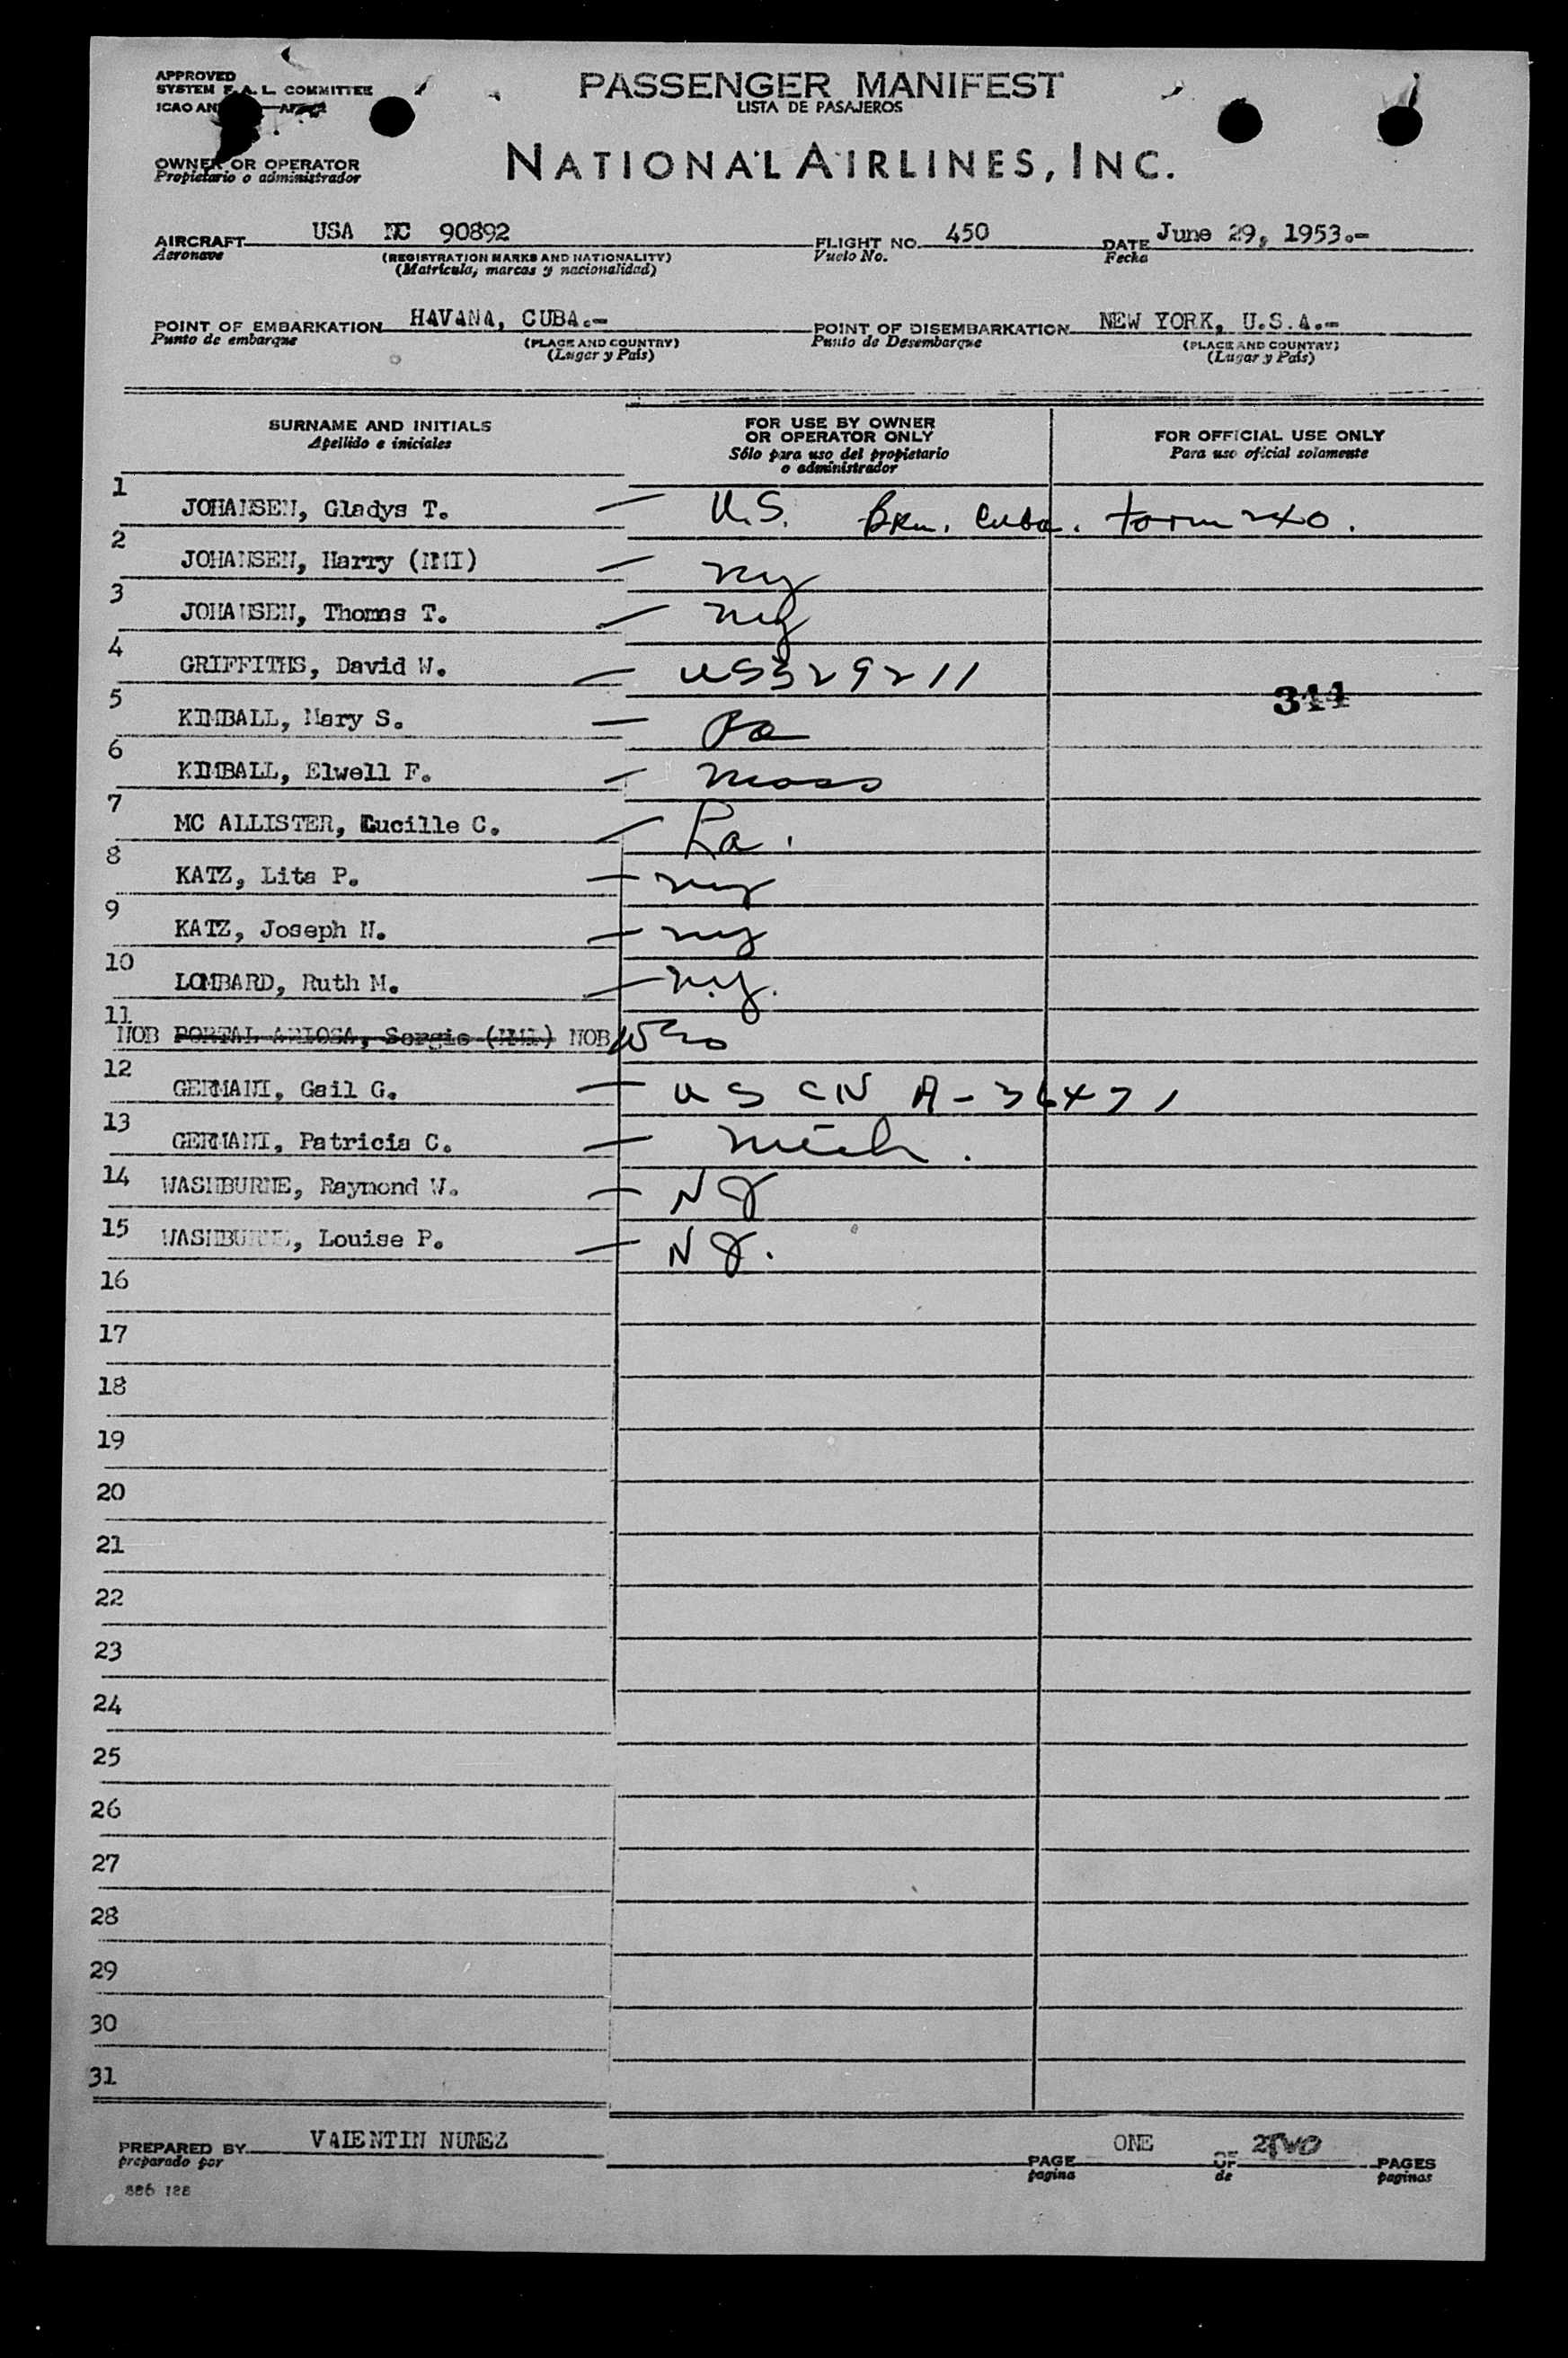 APPROVED
SYSTEM F.A.L. COMMITTEE
ICAO
PASSENGER MANIFEST
LISTA DE PASAJEROS
OWNER OR OPERATOR
Propietario o administrador
NATIONAL AIRLINES, INC.
AIRCRAFT USA NC 90892 FLIGHT NO. 450 DATE June 29, 1953.-
Aeronave (REGISTRATION MARKS AND NATIONALITY) Vuelo No. Fecha
(Matricula, marcas y nacionalidad)
POINT OF EMBARKATION HAVANA, CUBA.- POINT OF DISEMBARKATION NEW YORK, U.S.A.-
Punto de embarque (PLACE AND COUNTRY) Punto de Desembarque (PLACE AND COUNTRY)
(Lugar y País) (Lugar y País)
SURNAME AND INITIALS
Apellido e iniciales
FOR USE BY OWNER
OR OPERATOR ONLY
Sólo para uso del propietario
o administrador
FOR OFFICIAL USE ONLY
Para uso oficial solamente
1 JOHANSEN, Gladys T. — U.S. Cuba. form 240.
2 JOHANSEN, Harry (NMI) — NY
3 JOHANSEN, Thomas T. — NY
4 GRIFFITHS, David W. — US329211
344
5 KIMBALL, Mary S. — Pa
6 KIMBALL, Elwell F. — Mass
7 MC ALLISTER, Lucille C. — La.
8 KATZ, Lita P. — NY
9 KATZ, Joseph N. — NY
10 LOMBARD, Ruth M. — N.Y.
11 NOB PORTAL ARIOSA, Sergio (NMI) NOB
12 GERMANI, Gail G. — US CN A-36471
13 GERMANI, Patricia C. — Mich.
14 WASHBURNE, Raymond W. — NJ
15 WASHBURNE, Louise P. — NJ.
16
17
18
19
20
21
22
23
24
25
26
27
28
29
30
31
PREPARED BY VALENTIN NUNEZ PAGE ONE OF TWO PAGES
preparado por pagina de paginas